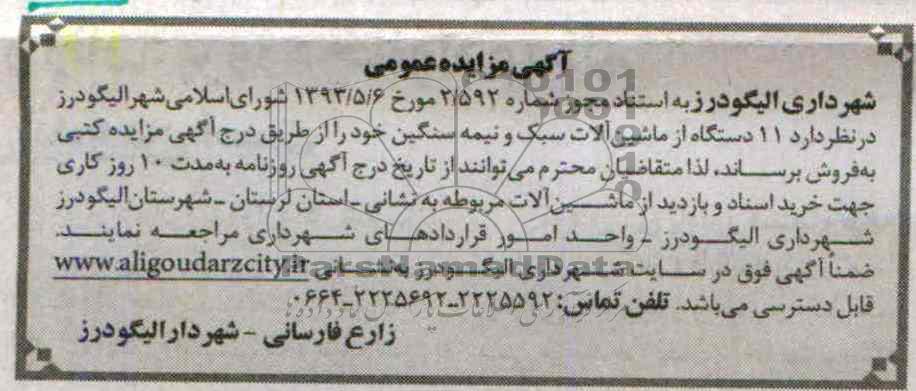 آگهی مزایده عمومی
شهرداری الیگودرز به استناد مجوز شماره ۲/۵۹۲ مورخ ۱۳۹۳/۵/۶ شورای اسلامی شهر الیگودرز
در نظر دارد ۱۱ دستگاه از ماشین آلات سبک و نیمه سنگین خود را از طریق درج آگهی مزایده کتبی
به‌فروش برساند، لذا متقاضیان محترم می‌توانند از تاریخ درج آگهی روزنامه به‌مدت ۱۰ روز کاری
جهت خرید اسناد و بازدید از ماشین آلات مربوطه به نشانی ـ استان لرستان ـ شهرستان الیگودرز
شهرداری الیگودرز ـ واحد امور قراردادهای شهرداری مراجعه نمایند.
ضمناً آگهی فوق در سایت شهرداری الیگودرز به‌نشانی www.aligoudarzcity.ir
قابل دسترسی می‌باشد. تلفن تماس: ۲۲۲۵۵۹۲ـ۲۲۲۵۶۹۲ـ۰۶۶۴
زارع فارسانی - شهردار الیگودرز
ParsNamadData